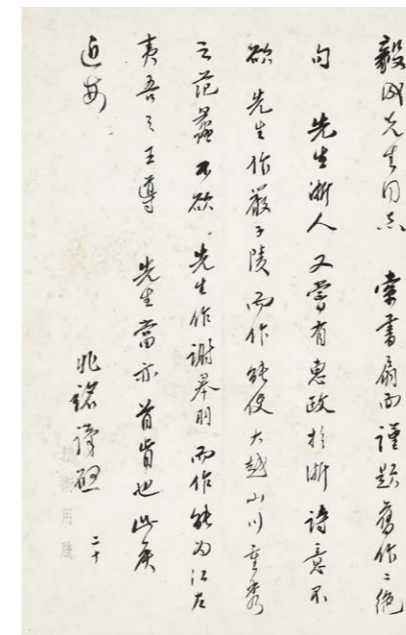 毅成先生同志 索書扇面謹題舊作二絕
句 先生浙人又嘗有惠政於浙詩意不
欲 先生作嚴子陵而作能使大越山川重秀
之范蠡不欲 先生作謝皋羽而作能為江左
夷吾之王導 先生當亦首肯也此候
近安
兆銘謹啟 二十
用箋